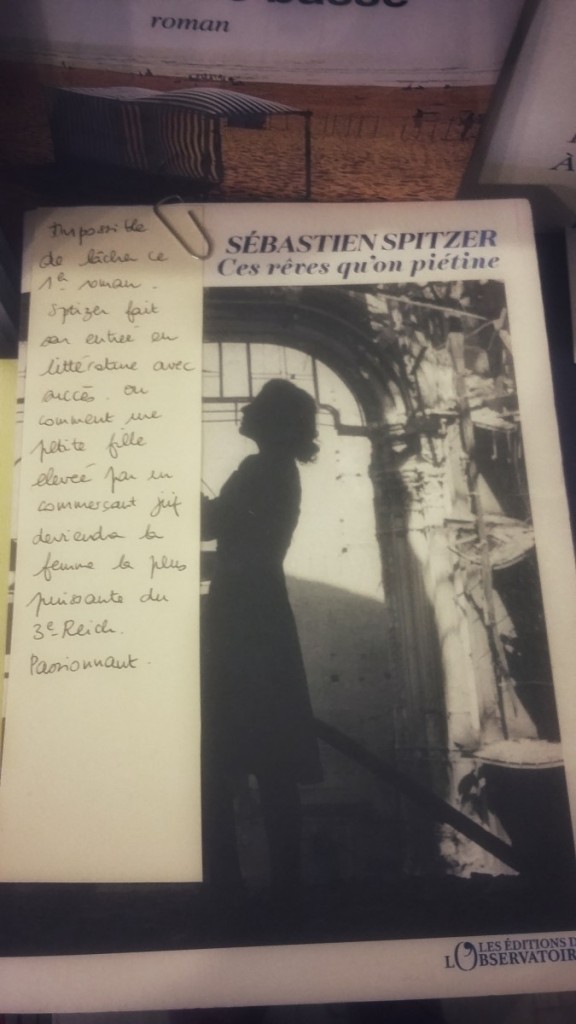 basse
roman
À
SÉBASTIEN SPITZER
Ces rêves qu'on piétine
Impossible
de lâcher ce
1er roman.
Spitzer fait
son entrée en
littérature avec
succès. ou
comment une
petite fille
élevée par un
commerçant juif
deviendra la
femme la plus
puissante du
3e Reich.
Passionnant.
LES ÉDITIONS D
L'OBSERVATOIR